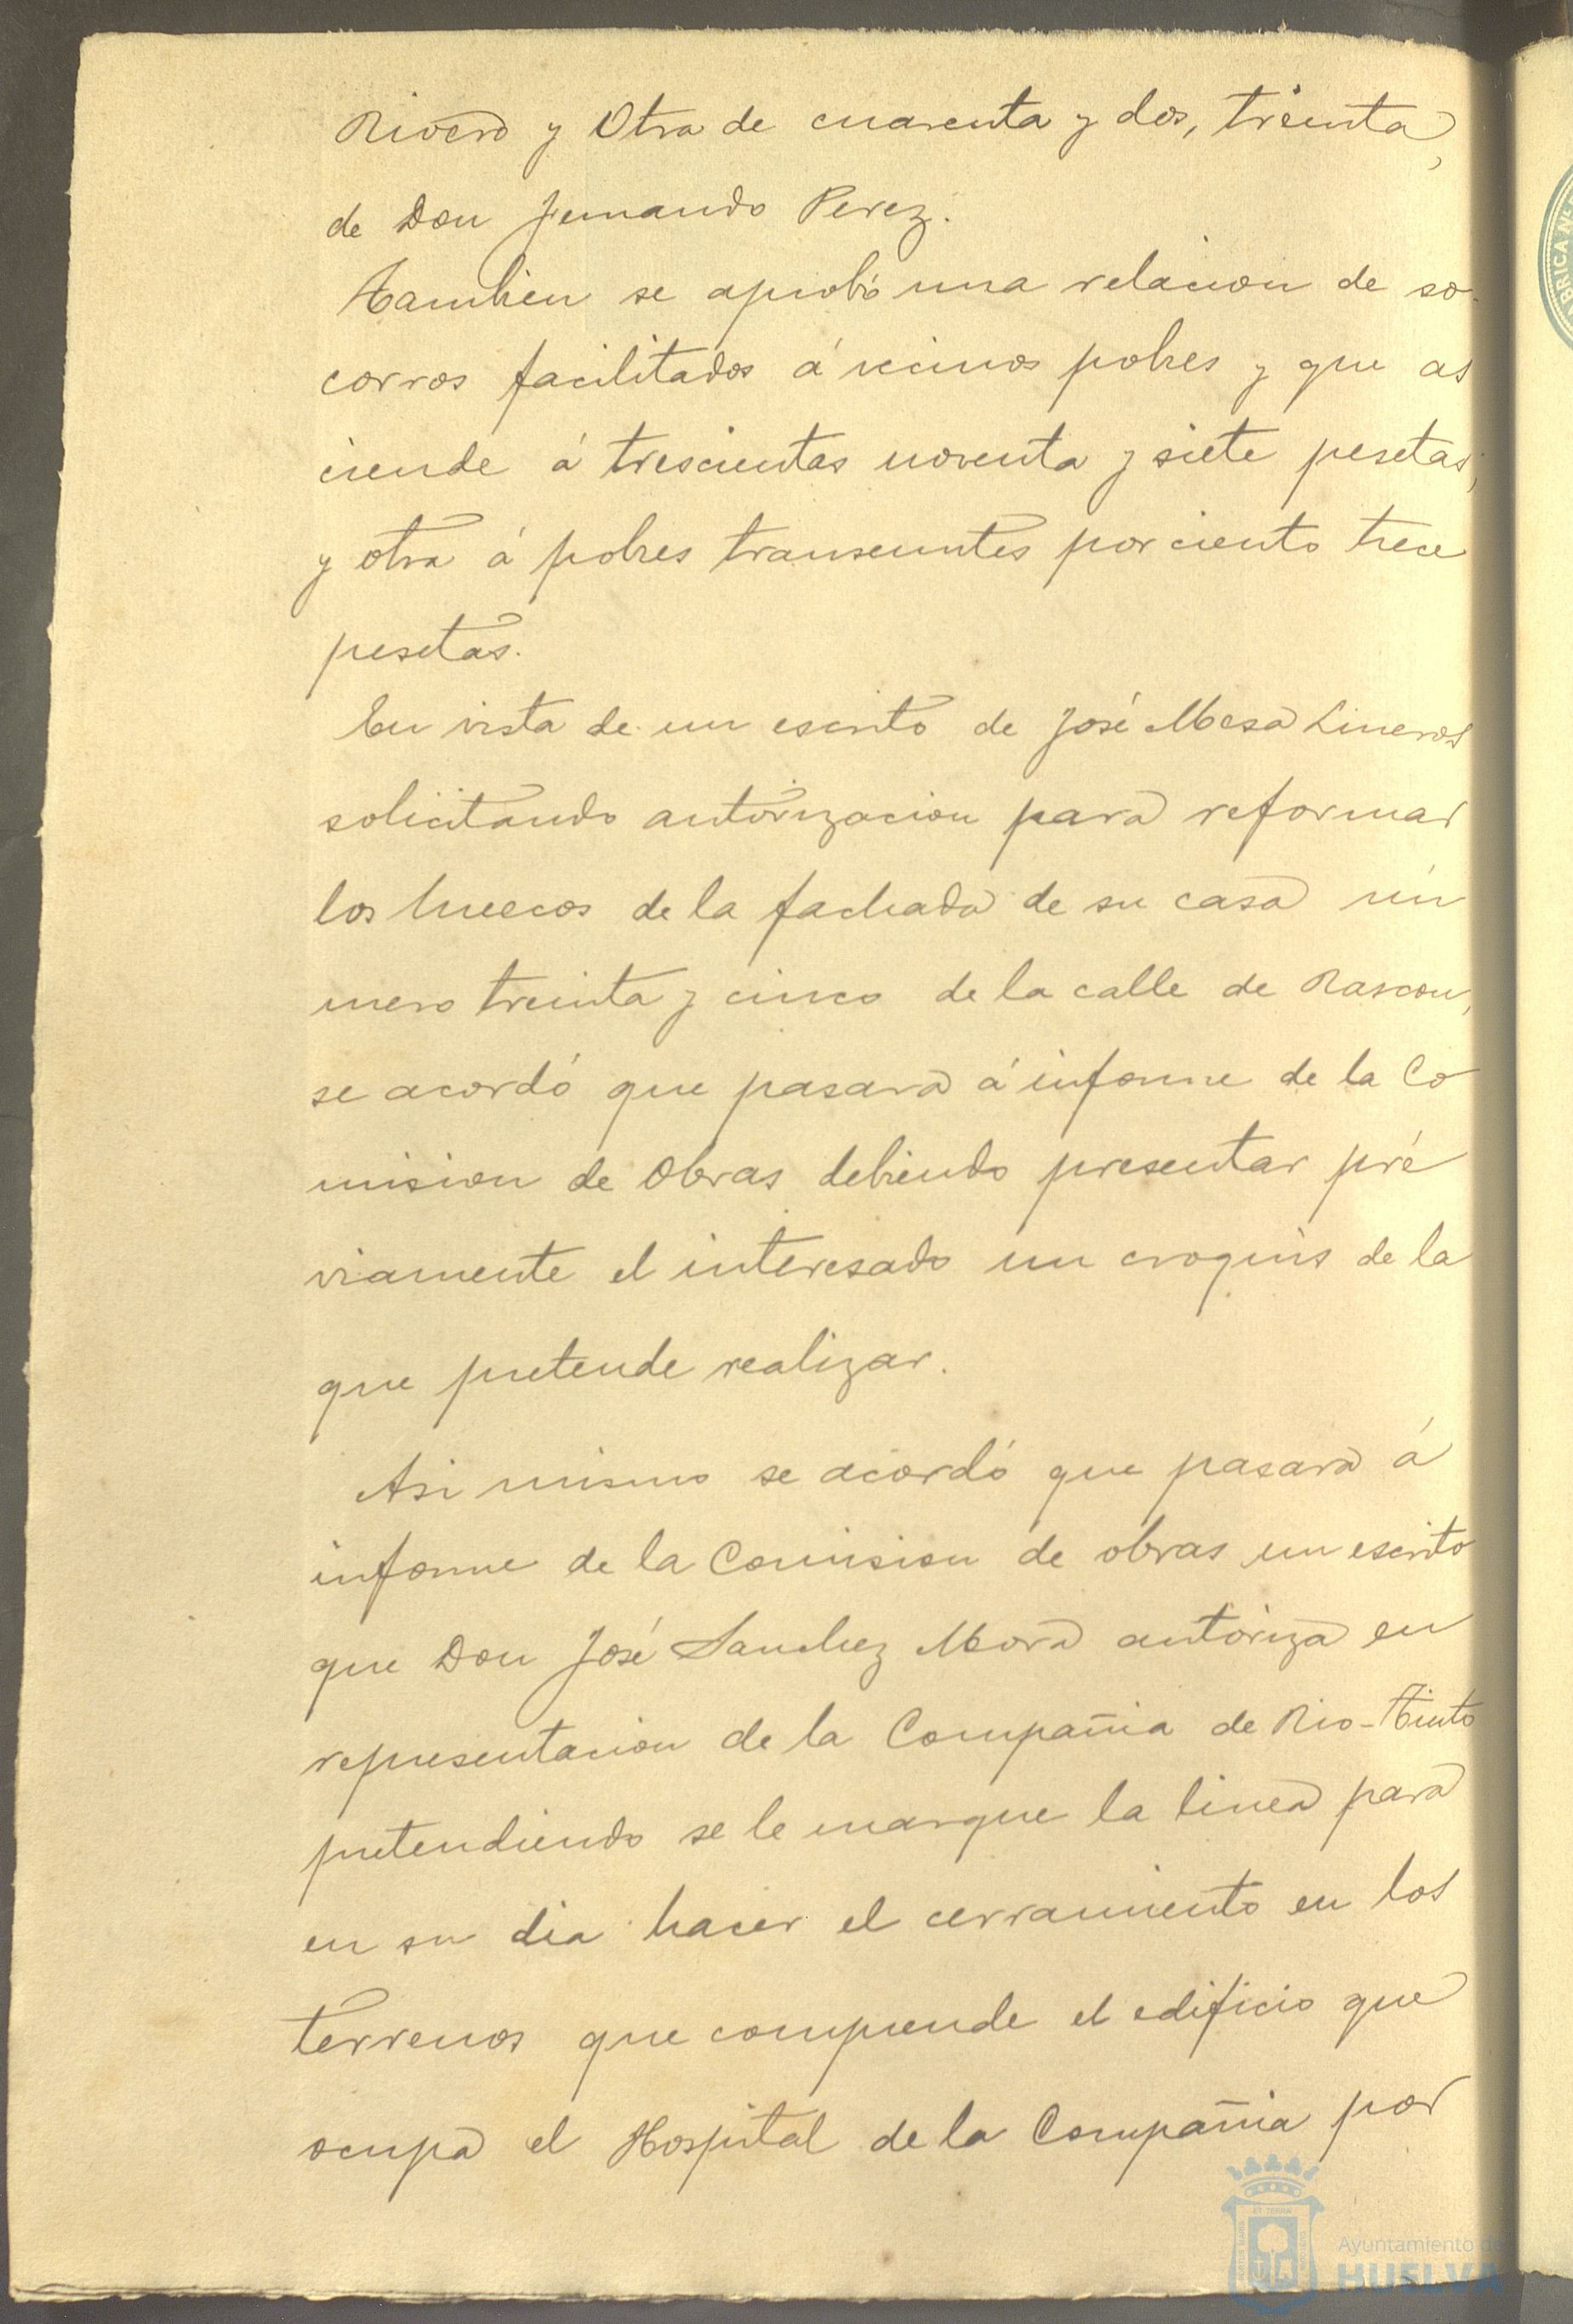 Rivero y Otra de cuarenta y dos, treinta,
de Don Fernando Perez.
Tambien se aprobó una relacion de so-
corros facilitados á vecinos pobres y que as
ciende á trescientas noventa y siete pesetas,
y otra á pobres transeuntes por ciento trece
pesetas.
En vista de un escrito de José Mesa Lineros
solicitando autorizacion para reformar
los huecos de la fachada de su casa nú
mero treinta y cinco de la calle de Rascon,
se acordó que pasara á informe de la Co
mision de Obras debiendo presentar pré
viamente el interesado un croquis de la
que pretende realizar.
Asi mismo se acordó que pasara á
informe de la Comision de obras un escrito
que Don José Sanchez Mora autoriza en
representacion de la Compañia de Rio-Tinto
pretendiendo se le marque la linea para
en su dia hacer el cerramiento en los
terrenos que comprende el edificio que
ocupa el Hospital de la Compañia por
Ayuntamiento de
HUELVA